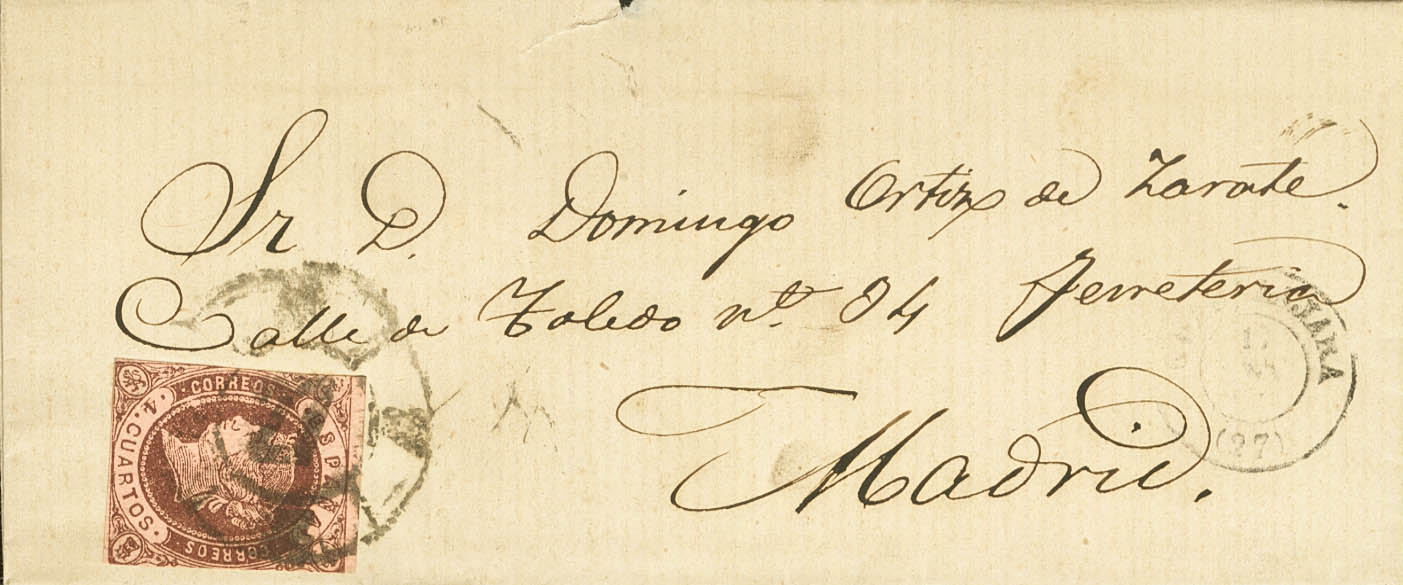 Sr D. Domingo Ortiz de Zarate.
Calle de Toledo nº. 84 Ferreteria
Madrid.
CORREOS
ESPAÑA
4 CUARTOS
CORREOS
JARA
(27)